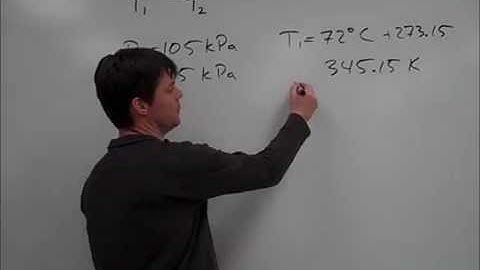 T₁ T₂
P₁ = 105 kPa
5 kPa
T₁ = 72° C + 273.15
345.15 K